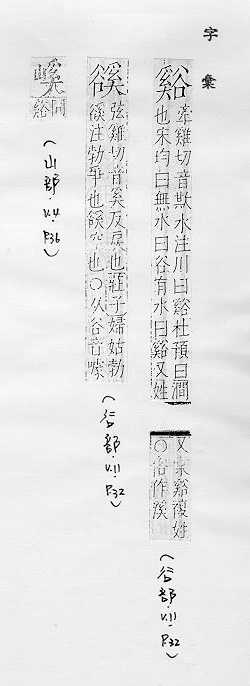 字彙
谿
牽雞切音欺水注川曰谿杜預曰澗
也宋均曰無水曰谷有水曰谿又姓
谿複姓
〇俗作溪
(谷部.V.11.P.32)
豀
弦雞切音奚反戾也莊子婦姑勃
豀注勃爭也豀空也〇从谷音
(谷部.V.11.P.32)
嵠
同
谿
(山部.V.4.P.36)